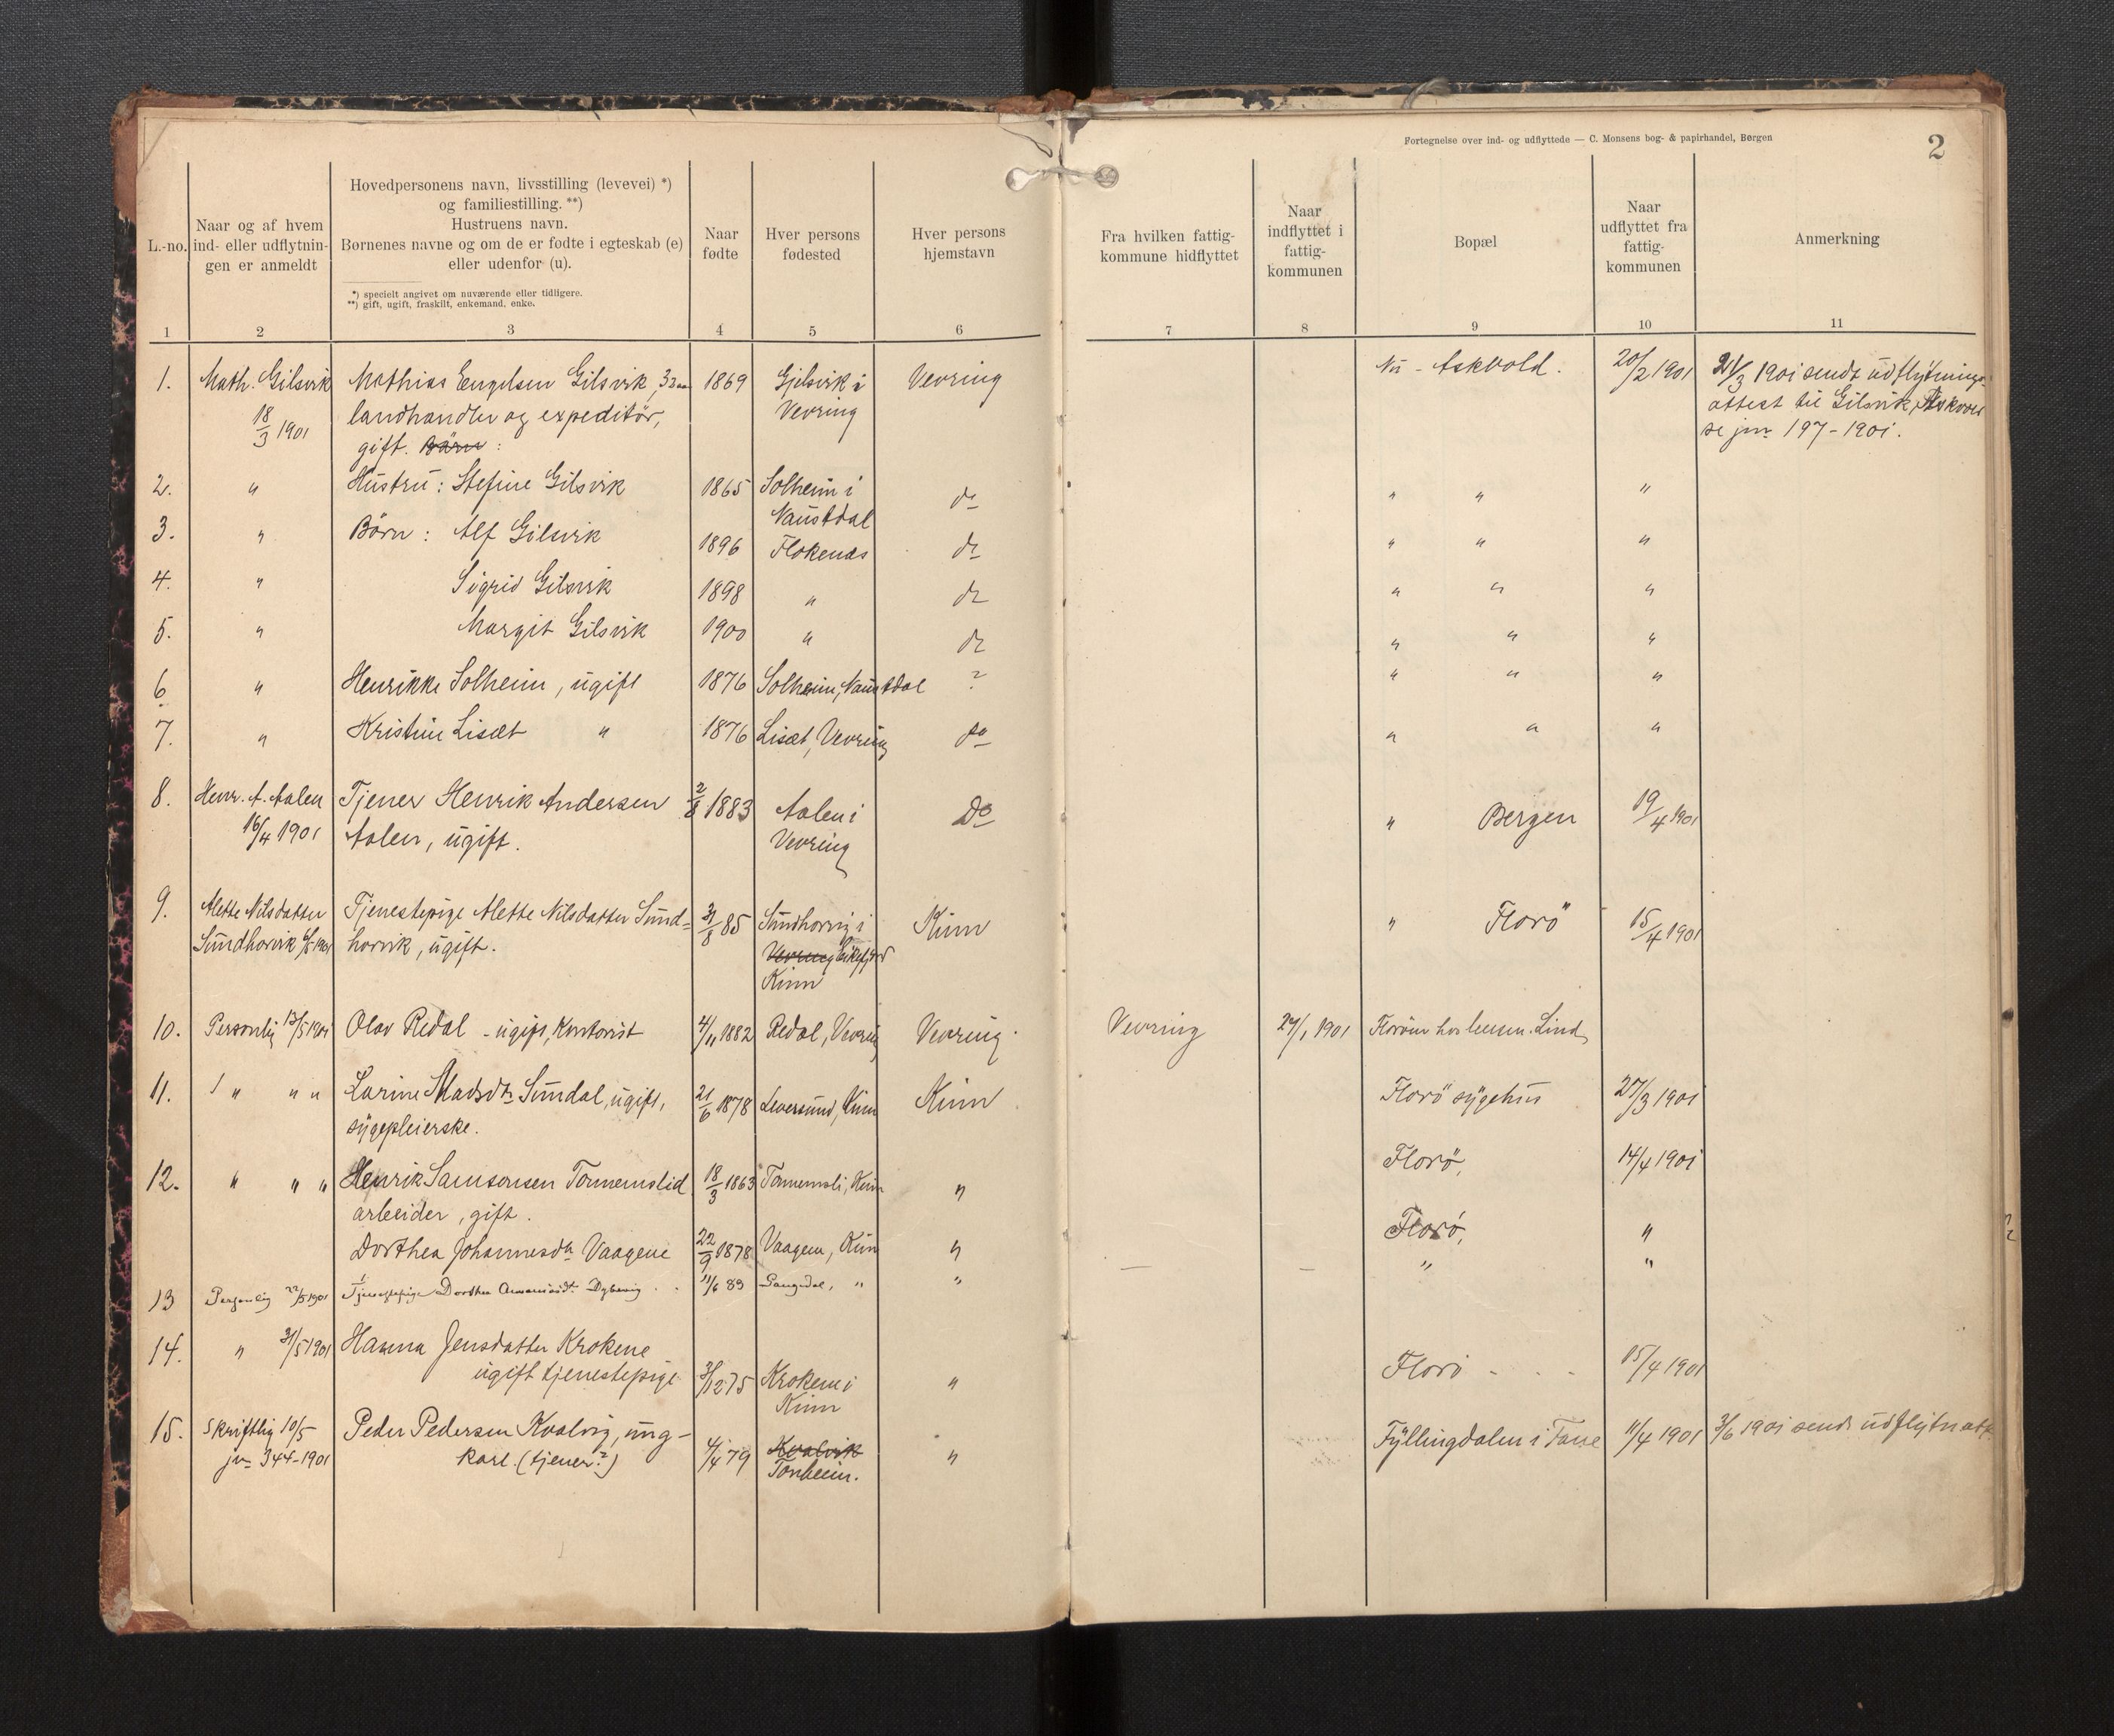 Fortegnelse over ind- og udflyttede — C. Monsens bog- & papirhandel, Bergen
2
L.-no.
Naar og af hvem
ind- eller udflytnin-
gen er anmeldt
Hovedpersonens navn, livsstilling (levevei) *)
og familiestilling. **)
Hustruens navn.
Børnenes navne og om de er fødte i egteskab (e)
eller udenfor (u).
*) specielt angivet om nuværende eller tidligere.
**) gift, ugift, fraskilt, enkemand, enke.
Naar
fødte
Hver persons
fødested
Hver persons
hjemstavn
Fra hvilken fattig-
kommune hidflyttet
Naar
indflyttet i
fattig-
kommunen
Bopæl
Naar
udflyttet fra
fattig-
kommunen
Anmerkning
1 2 3 4 5 6 7 8 9 10 11
1. Math. Gilsvik Mathias Engelsen Gilsvik, 1869 Gjelsvik i Vevring Nu - Askvold. 20/2 1901 21/3 1901 sendt udflytnings-
18/3 1901 landhandler og expeditør, Vevring attest til Gilsvik, Askvold
gift. Børn : se jnr 197-1901.
2. " Hustru : Stefine Gilsvik 1865 Solheim i do " " "
Naustdal
3. " Børn : Alf Gilsvik 1896 Flokenæs do " " "
4. " Sigrid Gilsvik 1898 " do " " "
5. " Margit Gilsvik 1900 " do " " "
6. " Henrikke Solheim, ugift 1876 Solheim, Naustdal ? " " "
7. " Kristine Lisæt " 1876 Lisæt, Vevring do " " "
8. Henr. A. Aalen Tjener Henrik Andersen 2/8 1883 Aalen i Do " Bergen 19/4 1901
16/4 1901 Aalen, ugift. Vevring
9. Alette Nilsdatter Tjenestepige Alette Nilsdatter Sund- 31/8 85 Sundhorvig i Kinn " Florø 15/4 1901
Sundhorvik 6/5 1901 horvik, ugift. Vevring Eikefjord
Kinn
10. Personlig 13/5 1901 Olav Redal - ugift, Kontorist 4/11 1882 Redal, Vevring Vevring. Vevring 24/1 1901 Florøen hos lensm. Lind
11. " " " Larine Madsdtr Sundal, ugift, 21/6 1878 Leversund, Kinn Kinn Florø sygehus 27/3 1901
sygepleierske.
12. " " " Henrik Samsonsen Tonnemslid 18/3 1863 Tonnemsli, Kinn " Florø, 14/4 1901
arbeider, gift.
Dorthea Johannesdtr Vaagene 22/9 1878 Vaagene, Kinn " Florø, "
13 Personlig 22/5 1901 Tjenestepige Dorthea 11/6 83 " " — — " "
14. " 31/5 1901 Hanna Jensdatter Krokene
ugift tjenestepige 3/12 75 Krokene i " Florø 15/4 1901
Kinn
15. Skriftlig 10/5 Peder Pedersen Kvalvig, ung- Fyllingdalen i 11/4 1901 3/6 1901 sendt udflytnatt
jnr 344-1901 karl. (tjener?) 4/4 79 Kvalvik "
Tonheim.